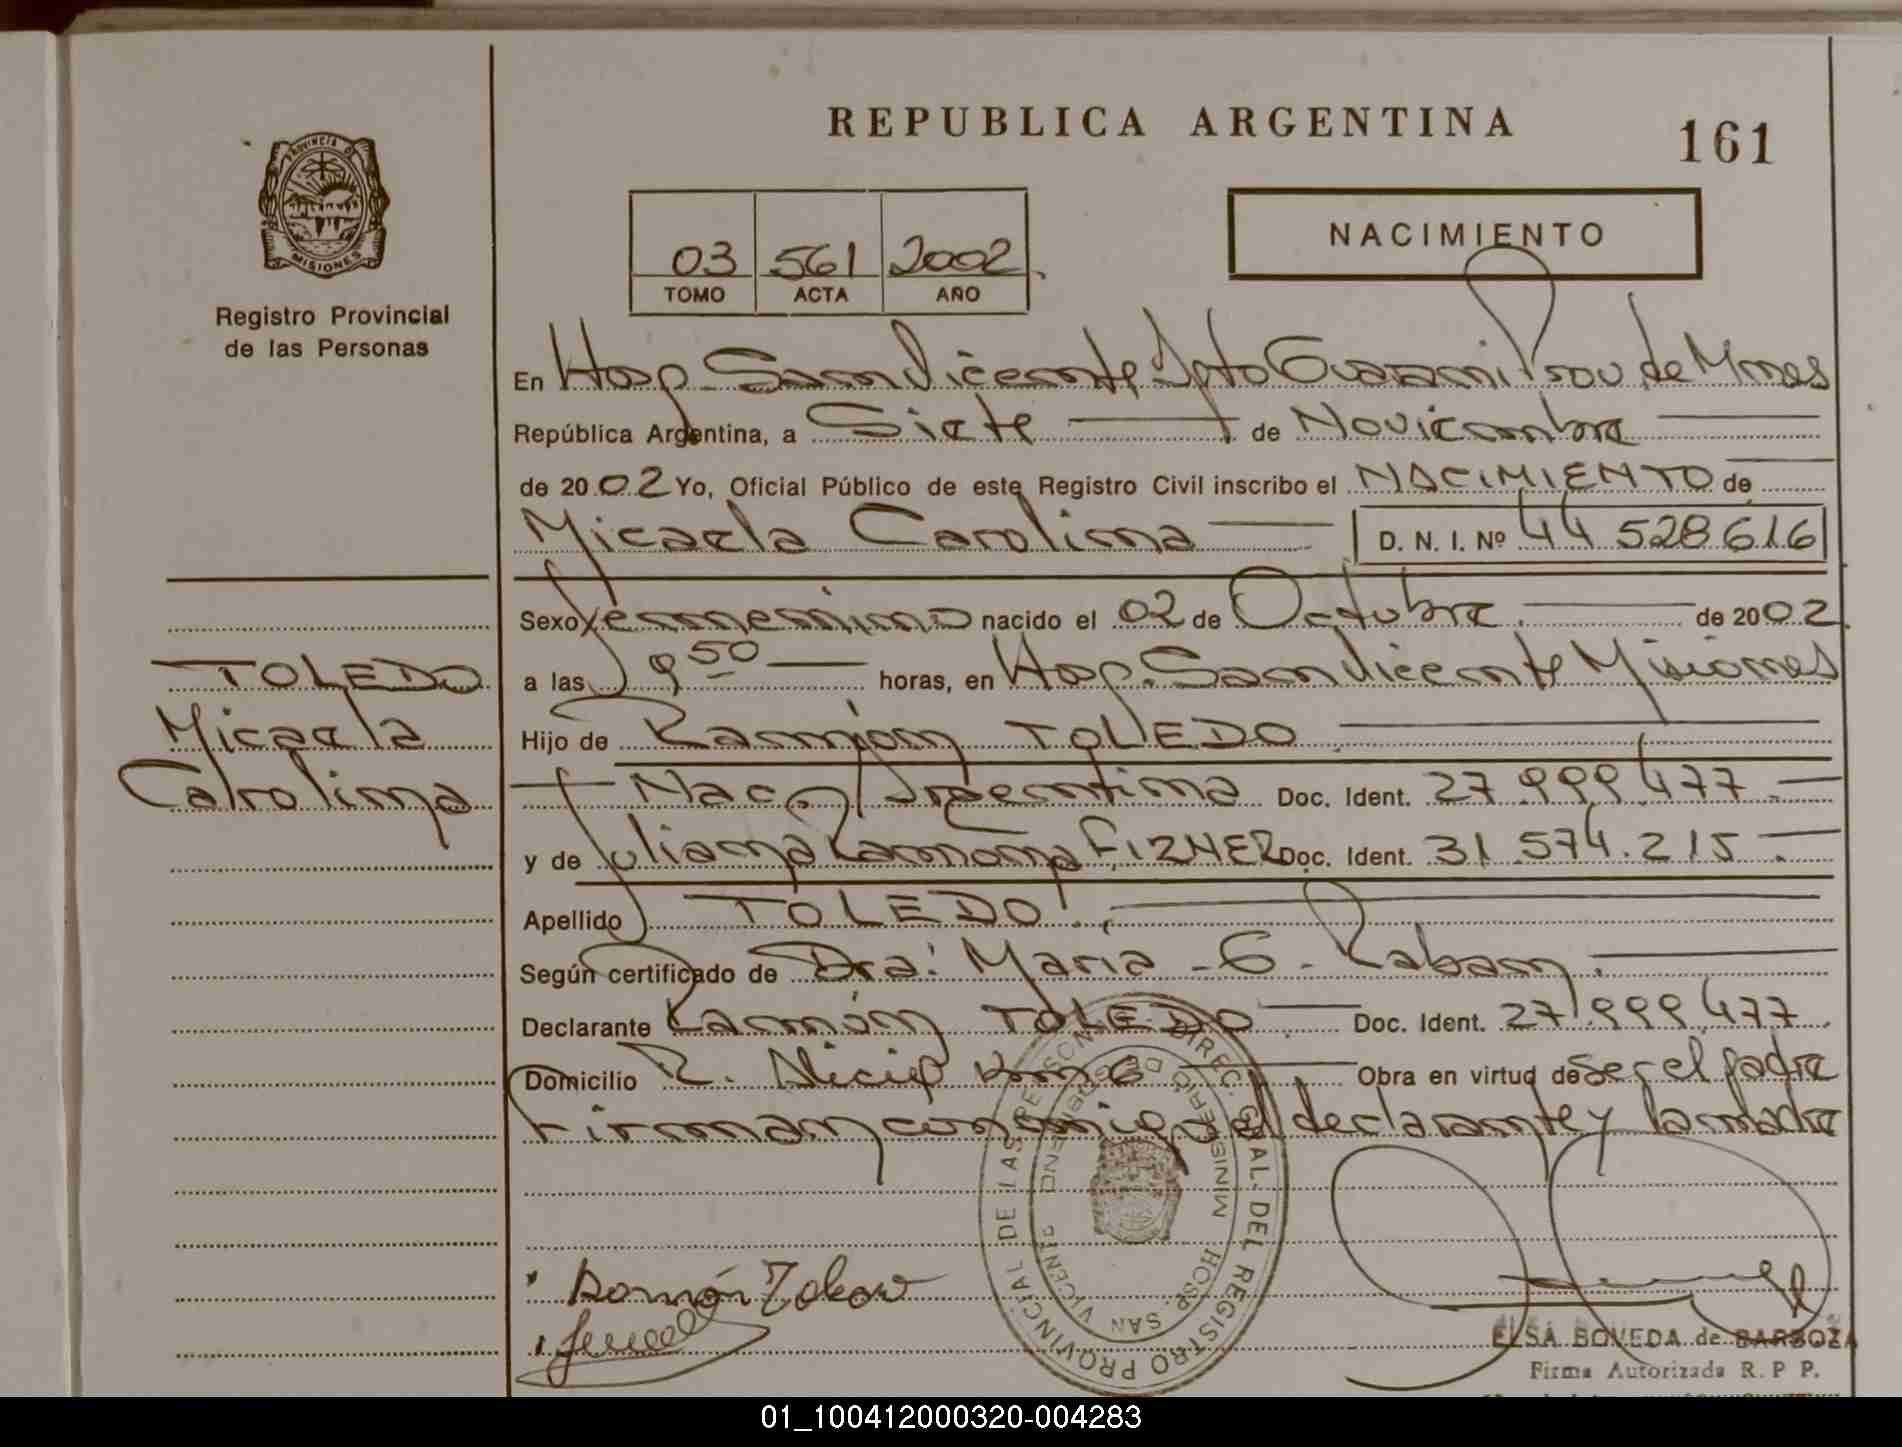 REPUBLICA ARGENTINA
161
PROVINCIA DE
MISIONES
Registro Provincial
de las Personas
03 561 2002
TOMO ACTA AÑO
NACIMIENTO
En Hosp. San Vicente, Dpto Guarani Prov. de Mnes
República Argentina, a Siete de Noviembre
de 2002 Yo, Oficial Público de este Registro Civil inscribo el NACIMIENTO de
Micaela Carolina D. N. I. Nº 44 528 616
Sexo femenino nacido el 02 de Octubre de 2002
TOLEDO
Micaela
Carolina
a las 9 50 horas, en Hosp. San Vicente Misiones
Hijo de Ramón TOLEDO
Nac. Argentina Doc. Ident. 27 999 477
y de Juliana Ramona FIZNER Doc. Ident. 31.574.215
Apellido TOLEDO
Según certificado de Dra: Maria - G - Raban
Declarante Ramón TOLEDO Doc. Ident. 27 999 477
Domicilio P. Alicia Km 6 Obra en virtud de Ser el padre
Firman conmigo el declarante y la madre
DIREC. GRAL. DEL REGISTRO PROVINCIAL DE LAS PERSONAS
MINISTERIO DE GOBIERNO
HOSP. SAN VICENTE
Ramón Toledo
ELSA BOVEDA de BARBOZA
Firma Autorizada R. P. P.
01_100412000320-004283